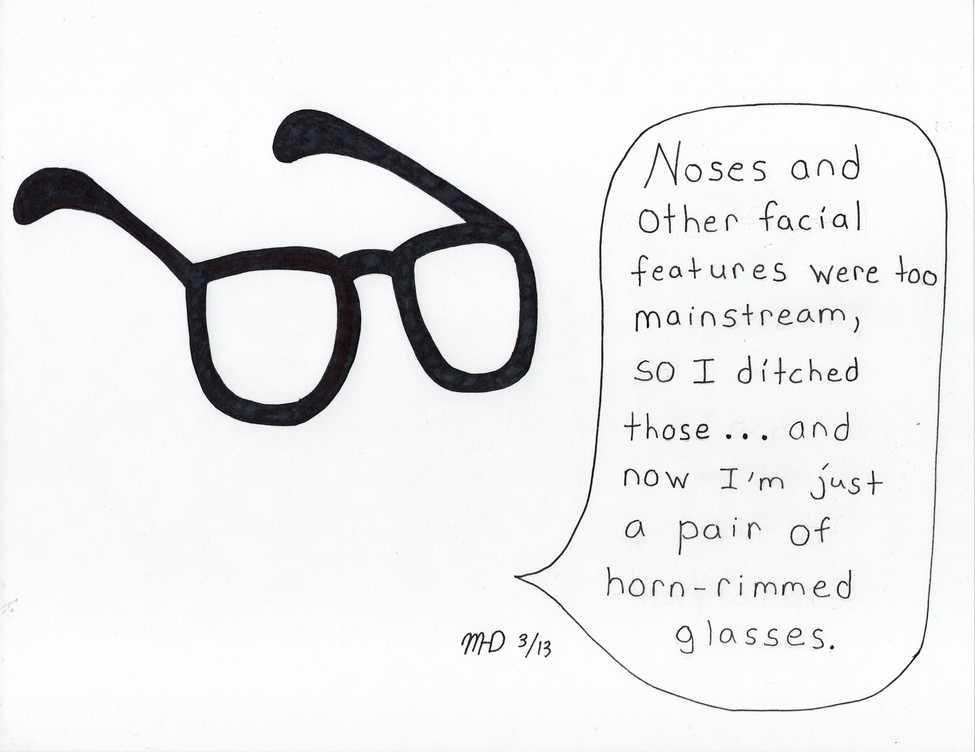 Noses and
other facial
features were too
mainstream,
so I ditched
those... and
now I'm just
a pair of
horn-rimmed
glasses.
MD 3/13